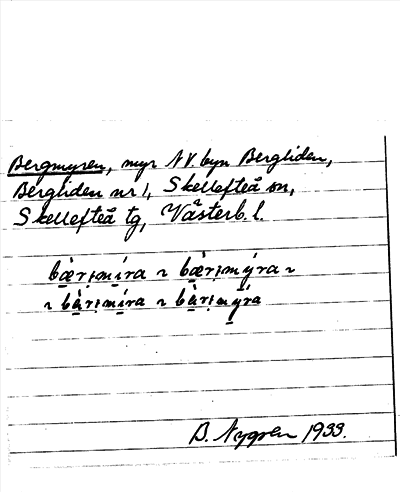 Bergmyren, myr NV. byn Bergliden,
Bergliden nr 1, Skellefteå sn,
Skellefteå tg, Västerb. l.
bæ̀rᶖmíra ~ bæ̀rᶖmýra ~
~ bàrᶖmíra ~ bàrᶖmýra
B. Nygren 1933.